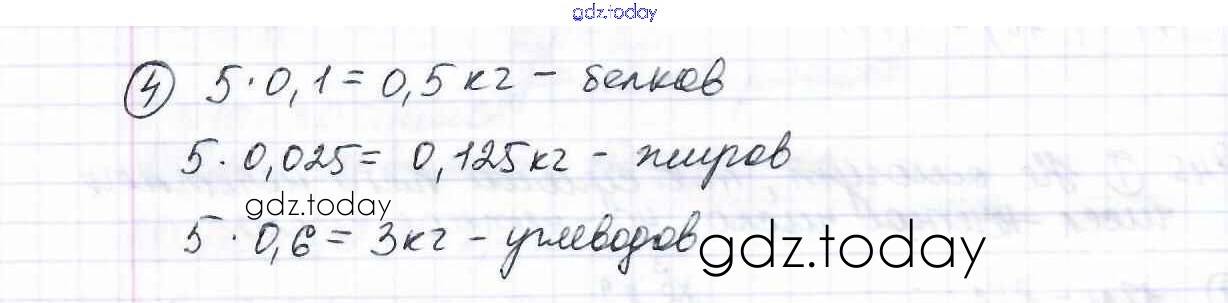 gdz.today
④ 5·0,1=0,5кг – белков
5·0,025= 0,125кг – жиров
gdz.today
5·0,6=3кг – углеводов
gdz.today